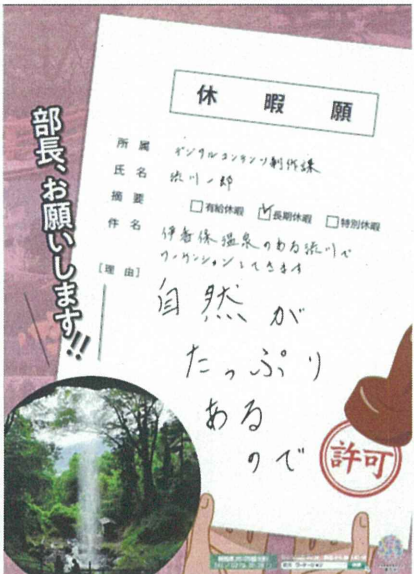 休暇願
部長、お願いします!!
所属 デジタルコンテンツ制作課
氏名 渋川一郎
摘要 □有給休暇 ☑長期休暇 □特別休暇
件名 伊香保温泉のある渋川で
ワーケーションしてきます
[理由]
自然が
たっぷり
ある
ので
許可